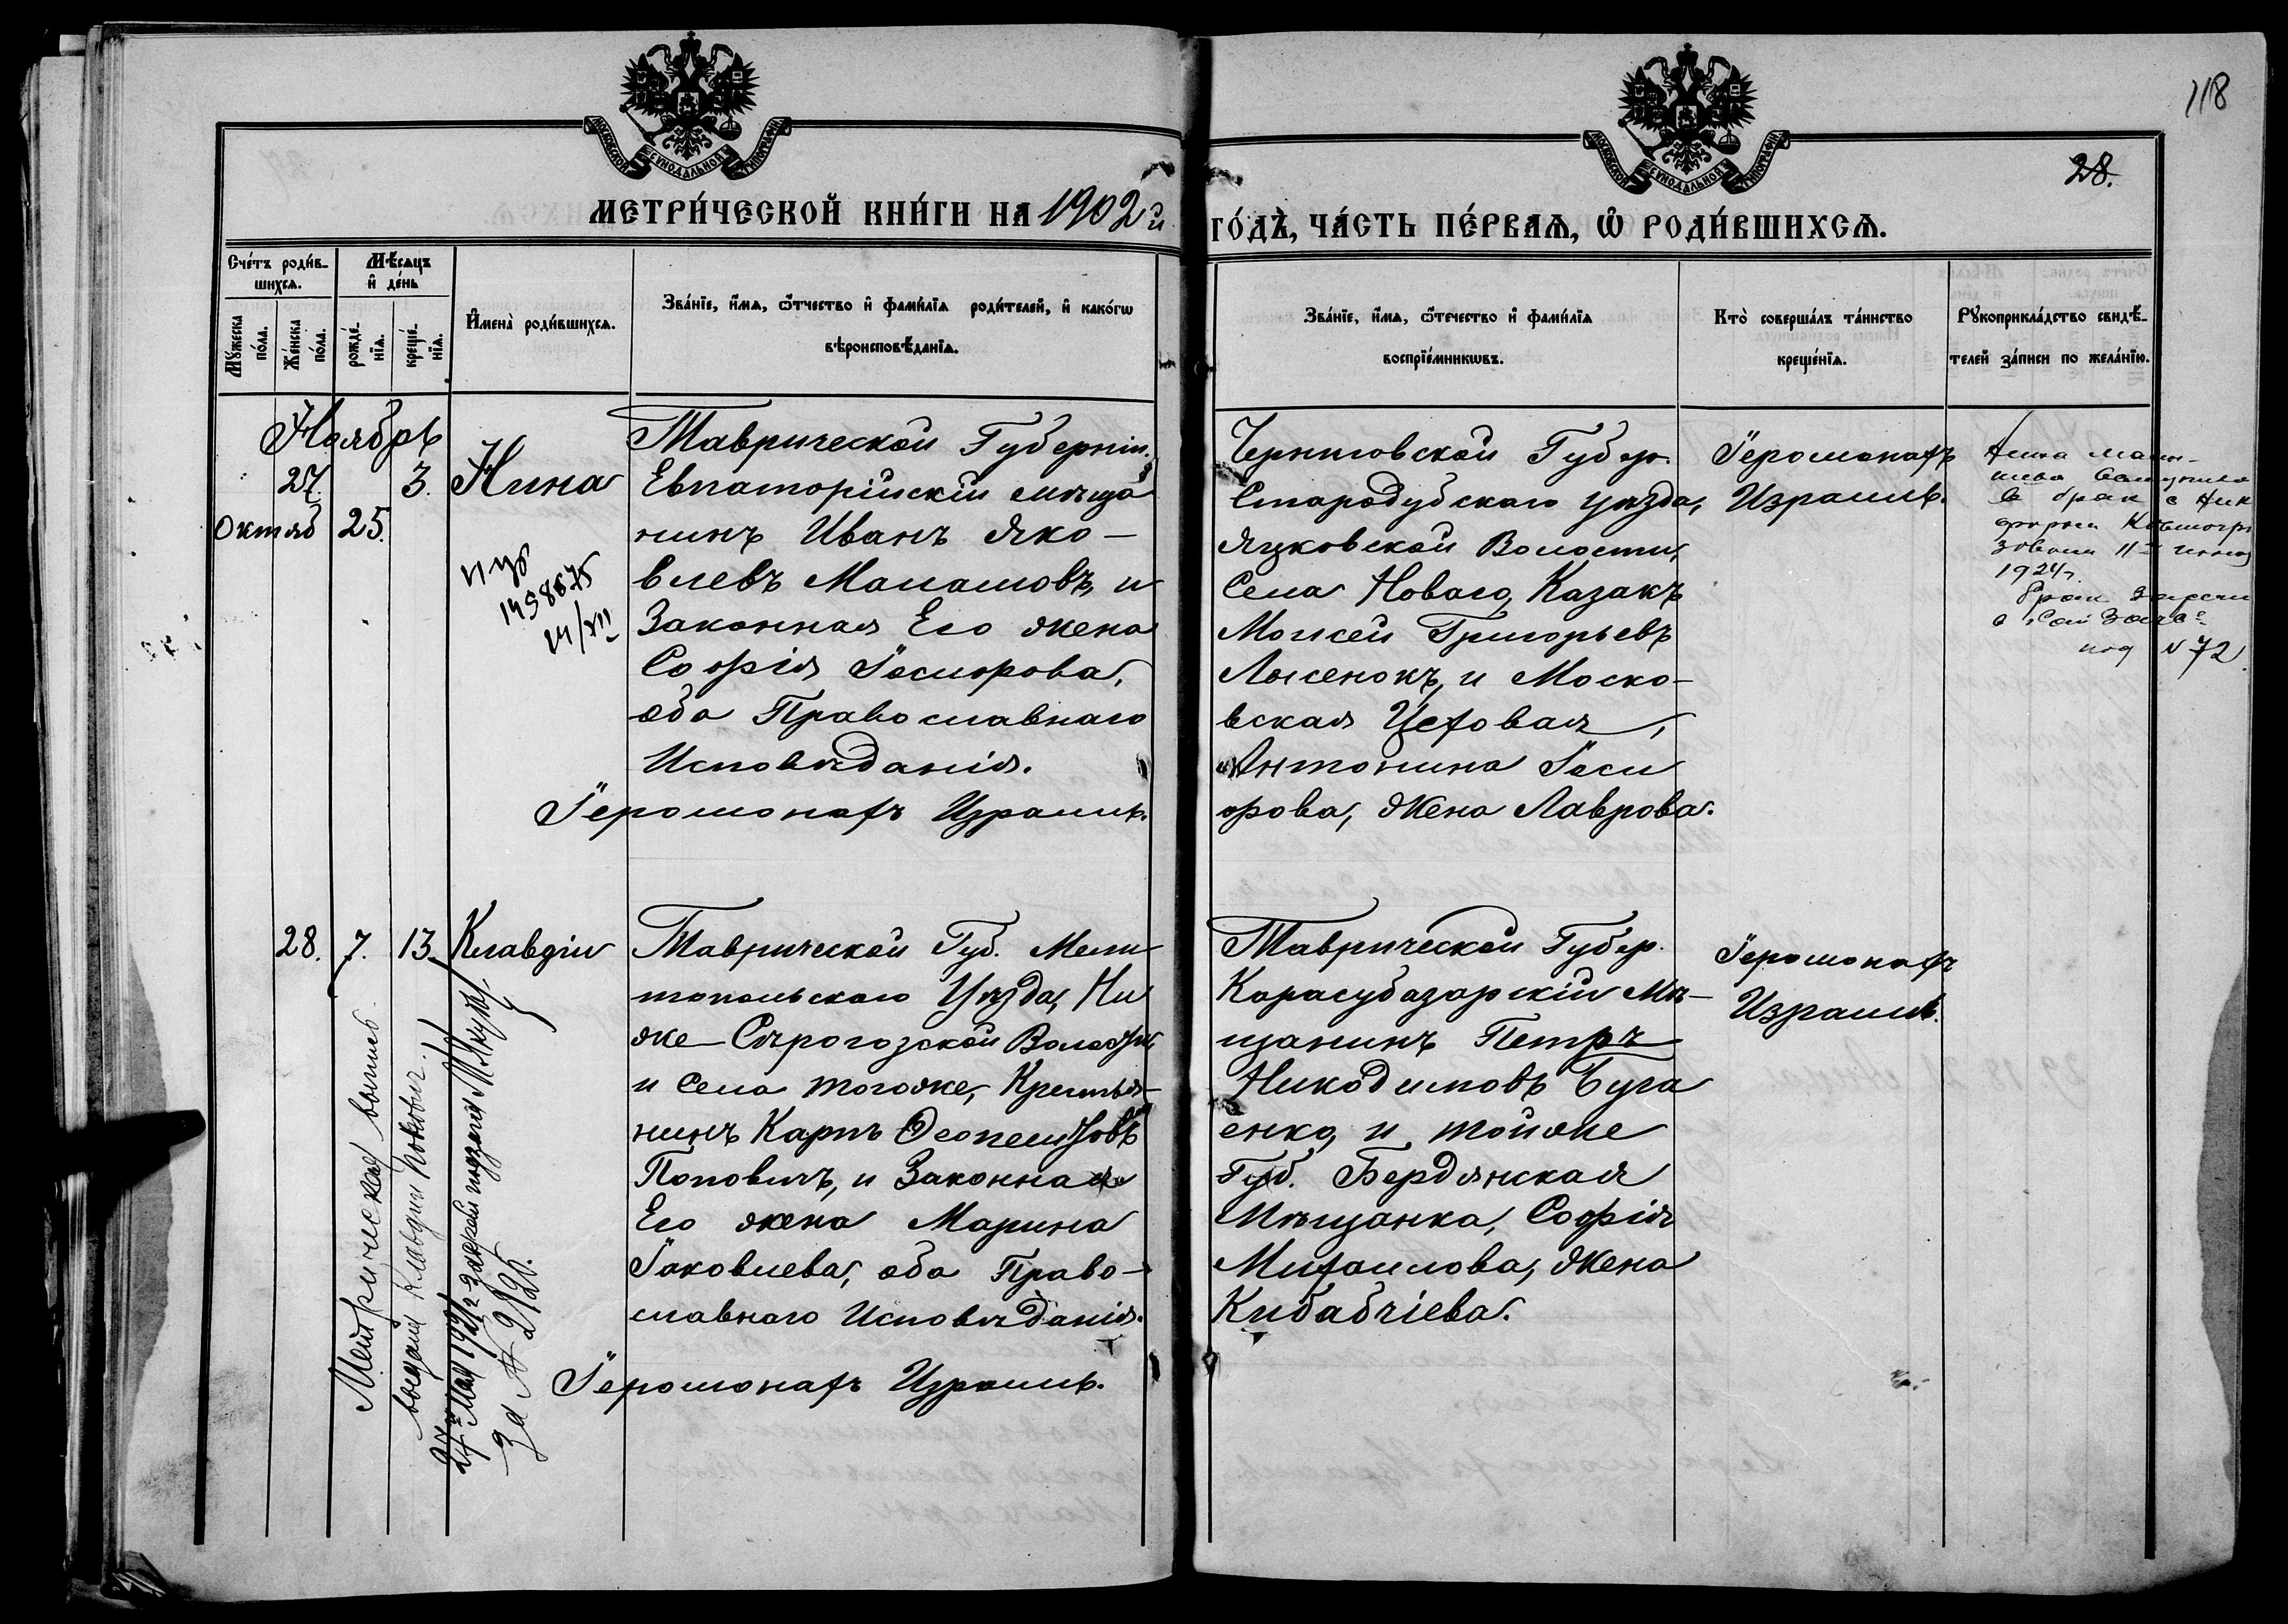 118
28.
МОСКОВСКОЙ СѴНОДАЛЬНОЙ ТИПОГРАФІИ
МОСКОВСКОЙ СѴНОДАЛЬНОЙ ТИПОГРАФІИ
МЕТРИ́ЧЕСКОЙ КНИ́ГИ НА 1902й
ГО́ДЪ, ЧА́СТЬ ПЕ́РВАѦ, Ѡ҆ РОДИ́ВШИХСѦ.
Сче́тъ роди́в-
шихсѧ.
Мѣ́сѧцъ
и҆ де́нь
Мꙋ́жеска
по́ла.
Же́нска
по́ла.
рожде́-
нїѧ.
креще́-
нїѧ.
И҆мена̀ роди́вшихсѧ.
Зва́нїе, и҆́мѧ, ѻ҆́тчество и҆ фами́лїѧ роди́телей, и҆ како́гѡ
вѣроисповѣ́данїѧ.
Зва́нїе, и҆́мѧ, ѻ҆́течество и҆ фами́лїѧ
воспрїе́мникѡвъ.
Кто̀ соверша́лъ та́инство
креще́нїѧ.
Рꙋкоприкла́дство свидѣ́-
телей за́писи по жела́нїю.
Ноябрь
27.
3.
Октяб
25.
Нина
1498675
14/XII
Таврической Губерніи.
Евпаторійскій мѣща
нинъ Иванъ Яко-
влевъ Манашовъ, и
Законная Его жена
Софія Іосифова,
оба Православнаго
Исповѣданія.
Іеромонахъ Израиль.
Черниговской Губер.
Стародубскаго уѣзда,
Язковской Волости,
Села Новаго, Казакъ
Моисей Григорьевъ
Лысенокъ, и Моско-
вская Цеховая,
Антонина Іоси
фова, Жена Лаврова.
Іеромонахъ
Израиль.
в брак с Ник
1924 г.
под N 72
28. 7. 13. Клавдіи
Таврической Губ. Мели
топольскаго Уѣзда, Ни
же-Сѣрогозской Волости
и Села тогоже, Крестья-
нинъ Карпъ Ѳеопемптовъ
Поповичъ, и Законная
Его жена Марина
Іаковлева, оба Право-
славнаго Исповѣданія.
Іеромонахъ Израиль.
Таврической Губер.
Карасубазарскій Мѣ-
щанинъ Петръ
Никодимовъ Буга
енко, и тойже
Губ. Бердянская
Мѣщанка, Софія
Михаилова, Жена
Кибабчіева.
Іеромонахъ
Израиль.
Метрическая выпись
выдана Клавдіи Попович
27го Мая 1921 г.
За № 2126.